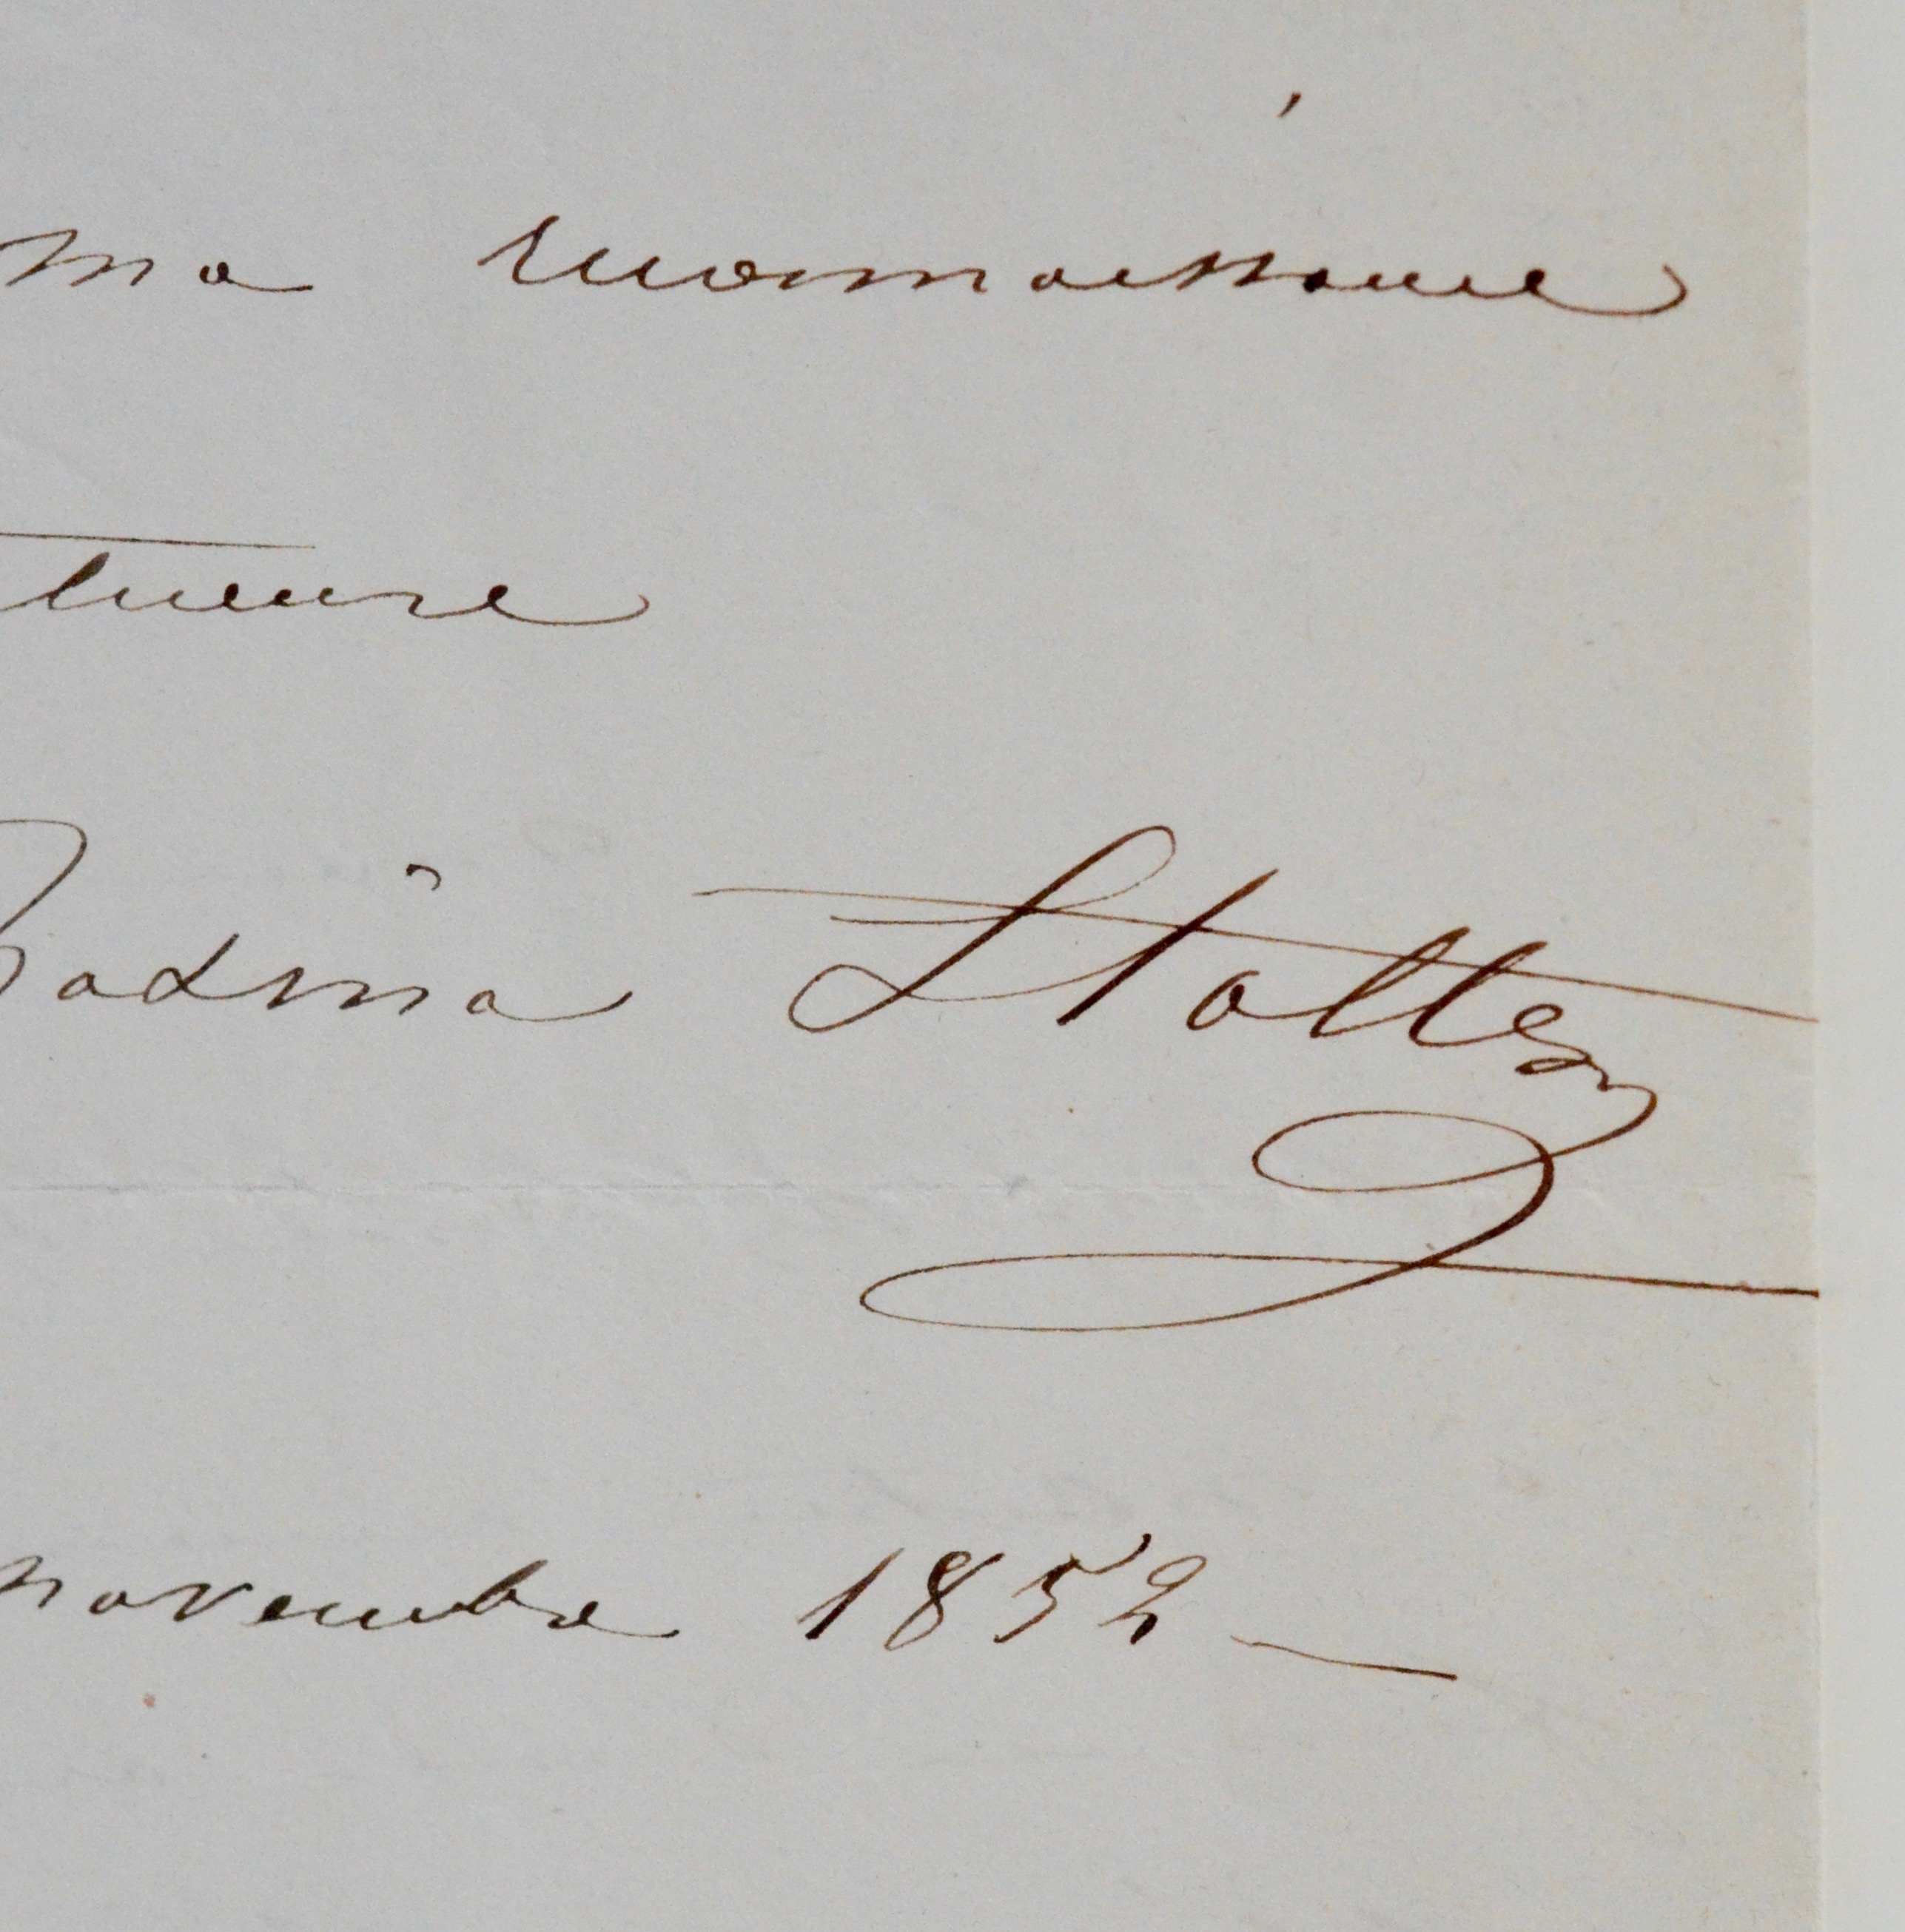 ma reconnaissance
tueuse
Rosina Stoltz
novembre 1852